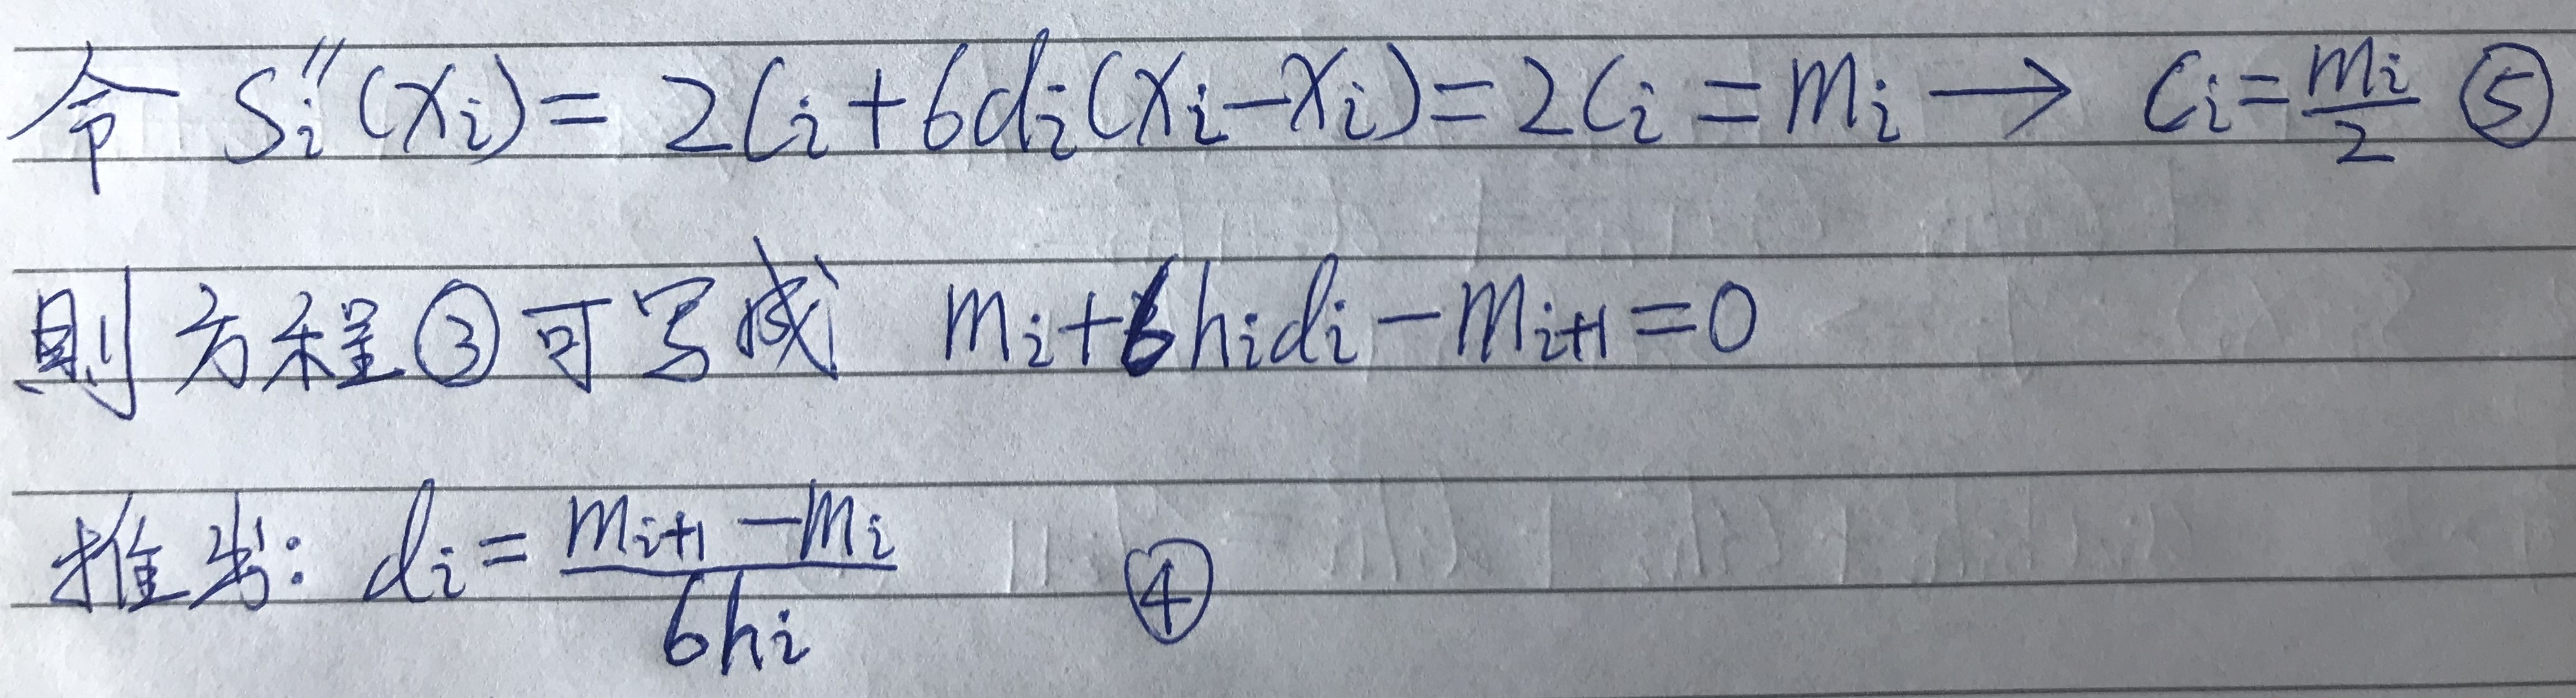 令 Sᵢ''(xᵢ) = 2Cᵢ + 6dᵢ(xᵢ - xᵢ) = 2Cᵢ = mᵢ → Cᵢ = mᵢ/2 ⑤
则方程③可写成 mᵢ + 6hᵢdᵢ - mᵢ₊₁ = 0
推出: dᵢ = (mᵢ₊₁ - mᵢ)/6hᵢ ④